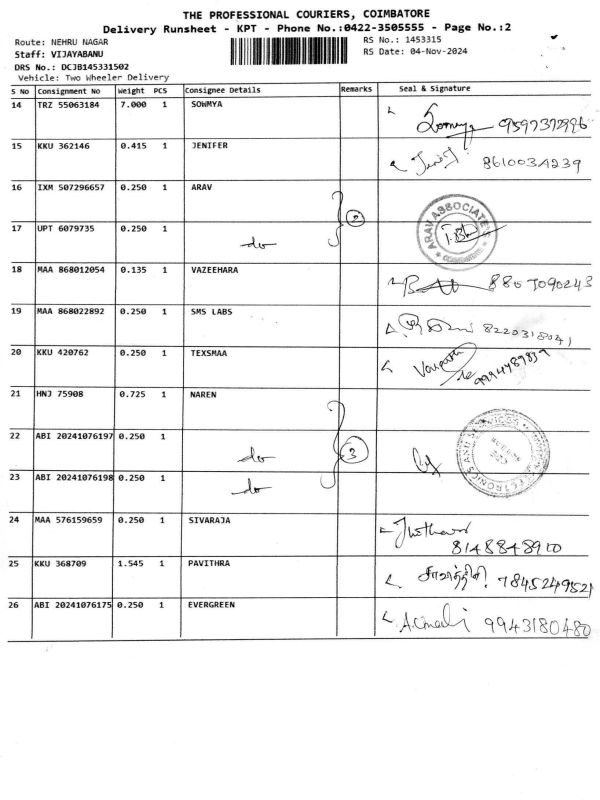 THE PROFESSIONAL COURIERS, COIMBATORE
Delivery Runsheet - KPT - Phone No.:0422-3505555 - Page No.:2
Route: NEHRU NAGAR
RS No.: 1453315
Staff: VIJAYABANU
RS Date: 04-Nov-2024
DRS No.: DCJB145331502
Vehicle: Two Wheeler Delivery
S No Consignment No Weight PCS Consignee Details Remarks Seal & Signature
14 TRZ 55063184 7.000 1 SOWMYA Sowmya 9597372996
15 KKU 362146 0.415 1 JENIFER
16 IXM 507296657 0.250 1 ARAV 2 ARAV ASSOCIATES COIMBATORE
17 UPT 6079735 0.250 1 do
18 MAA 868012054 0.135 1 VAZEEHARA
19 MAA 868022892 0.250 1 SMS LABS 8220318041
20 KKU 420762 0.250 1 TEXSMAA 9994489839
21 HNJ 75908 0.725 1 NAREN 3
22 ABI 20241076197 0.250 1 do
23 ABI 20241076198 0.250 1 do
24 MAA 576159659 0.250 1 SIVARAJA 8148848910
25 KKU 368709 1.545 1 PAVITHRA 7845249521
26 ABI 20241076175 0.250 1 EVERGREEN 9943180480